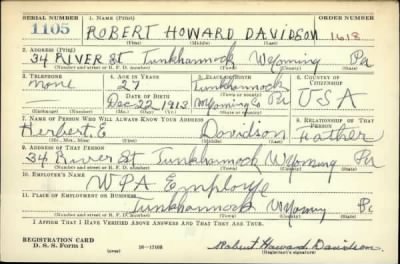 SERIAL NUMBER 1. NAME (Print) ORDER NUMBER
1105 ROBERT HOWARD DAVIDSON 1618
(First) (Middle) (Last)
2. ADDRESS (Print)
34 RIVER St Tunkhannock Wyoming Pa
(Number and street or R. F. D. number) (Town) (County) (State)
3. TELEPHONE 4. AGE IN YEARS 5. PLACE OF BIRTH 6. COUNTRY OF CITIZENSHIP
None 27 Tunkhannock
DATE OF BIRTH (Town or county)
Dec 22 1913 Wyoming Co Pa U S A
(Exchange) (Number) (Mo.) (Day) (Yr.) (State or country)
7. NAME OF PERSON WHO WILL ALWAYS KNOW YOUR ADDRESS 8. RELATIONSHIP OF THAT PERSON
Herbert E Davidson Father
(Mr., Mrs., Miss) (First) (Middle) (Last)
9. ADDRESS OF THAT PERSON
34 River St Tunkhannock Wyoming Pa
(Number and street or R. F. D. number) (Town) (County) (State)
10. EMPLOYER'S NAME
WPA Employe
11. PLACE OF EMPLOYMENT OR BUSINESS
Tunkhannock Wyoming Pa
(Number and street or R. F. D. number) (Town) (County) (State)
I AFFIRM THAT I HAVE VERIFIED ABOVE ANSWERS AND THAT THEY ARE TRUE.
REGISTRATION CARD
D. S. S. Form 1 (over) 16-17105 Robert Howard Davidson
(Registrant's signature)